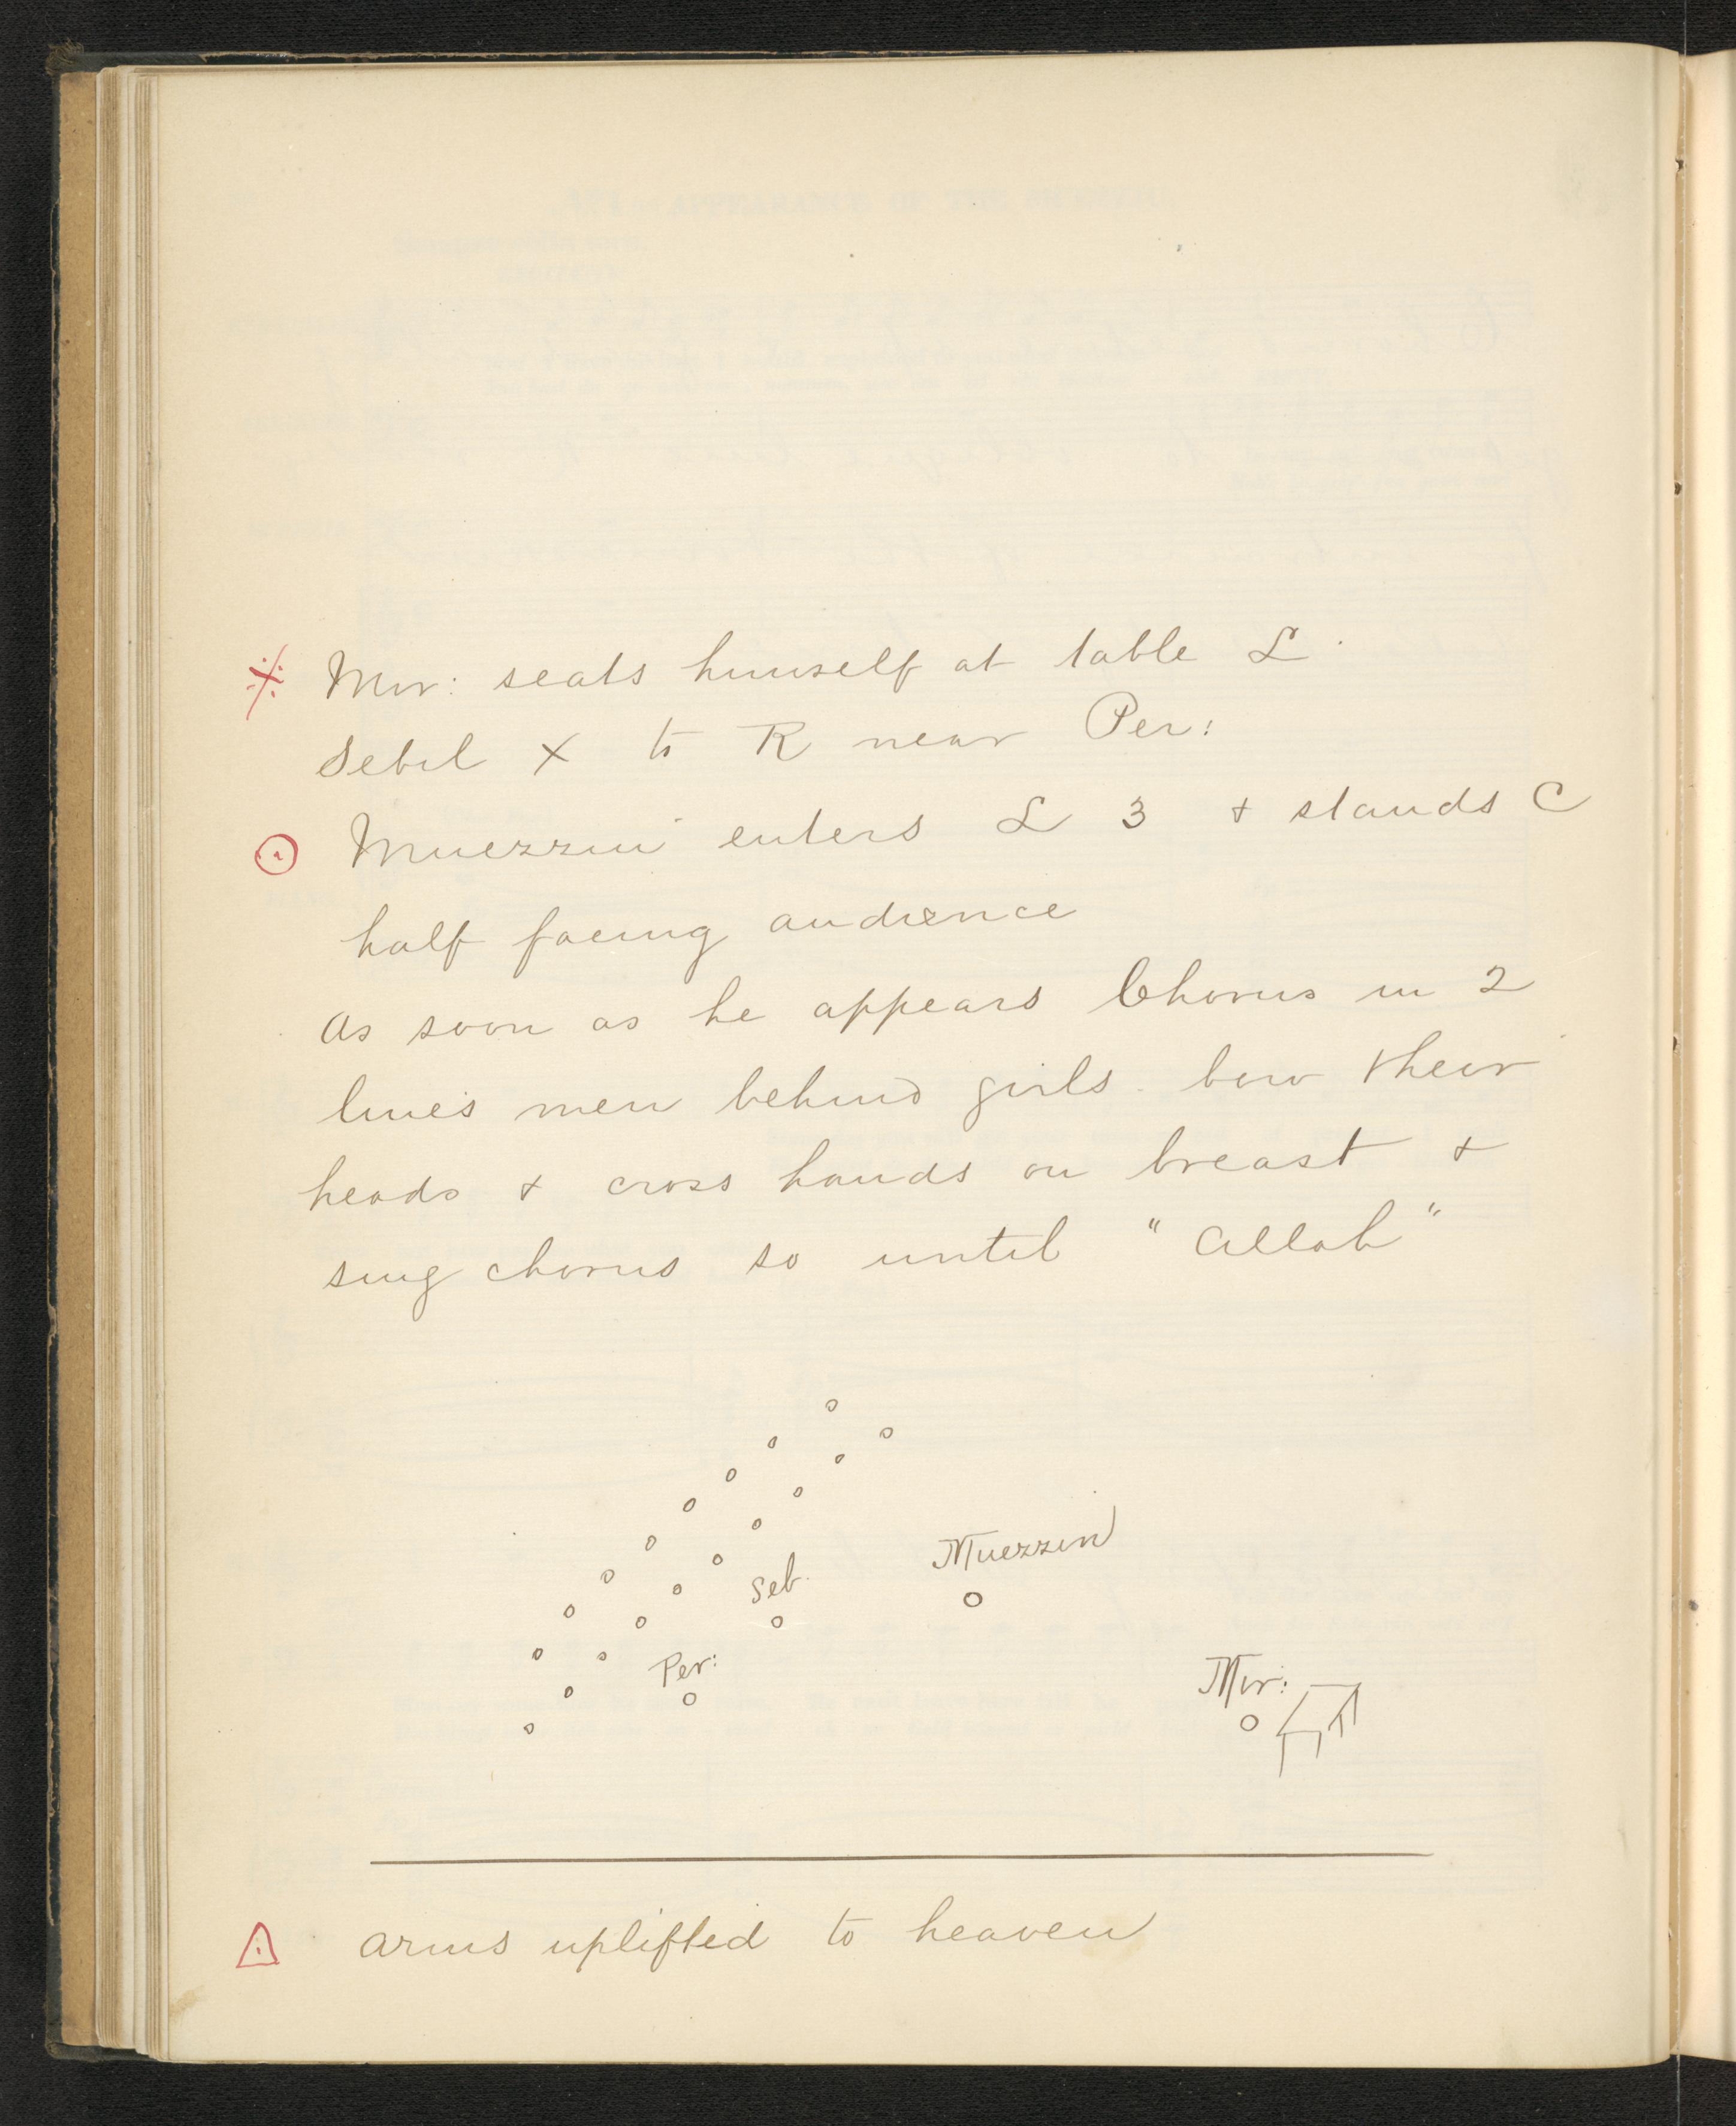 Mir: seats himself at table L.
Sebil X to R near Per:
Muezzin enters L 3 + stands C
half facing audience
As soon as he appears Chorus in 2
lines men behind girls. bow their
heads + cross hands on breast +
sing chorus so until "Allah"
Muezzin
Seb.
Per:
Mir:
arms uplifted to heaven